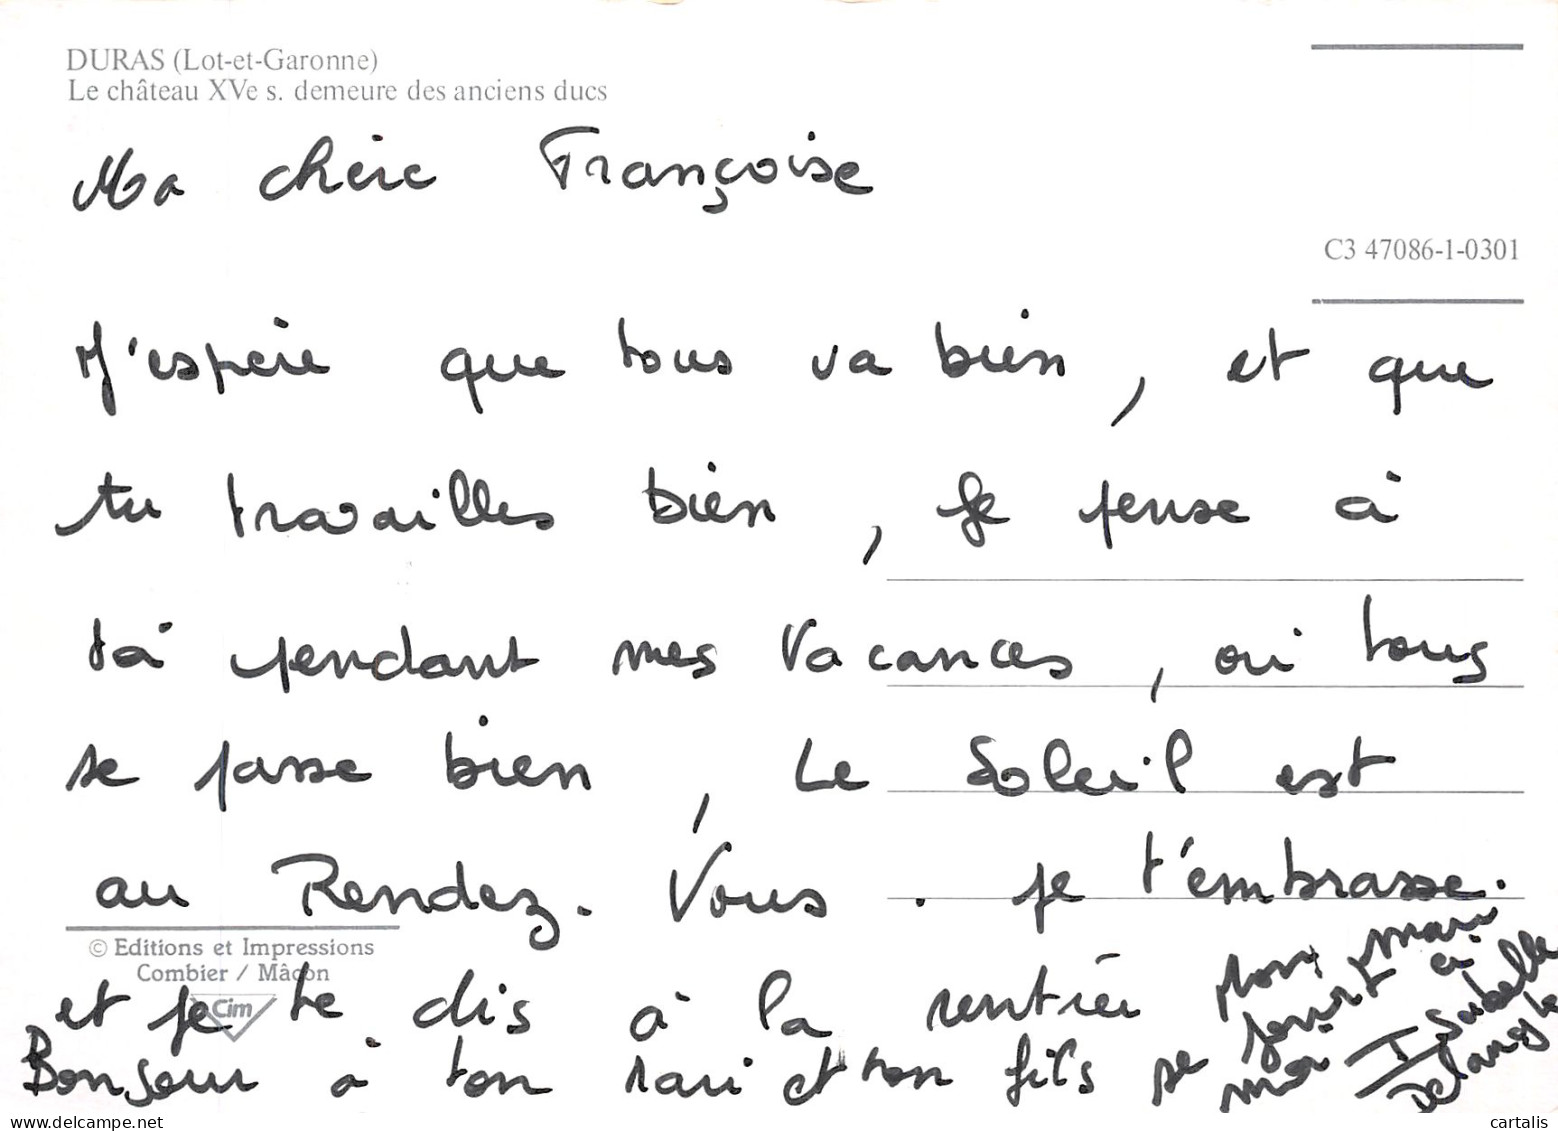 DURAS (Lot-et-Garonne)
Le château XVe s. demeure des anciens ducs
Ma chère Françoise
C3 47086-1-0301
J'espère que tous va bien, et que
tu travailles bien, je pense à
toi pendant mes Vacances, où tous
se passe bien, Le Soleil est
au Rendez-Vous. je t'embrasse.
© Editions et Impressions
Combier / Mâcon
Cim
et je te dis à la rentrée
Bonjour à ton mari et ton fils
mon mari
se joint à
moi Isabelle
Delangle
www.delcampe.net
cartalis